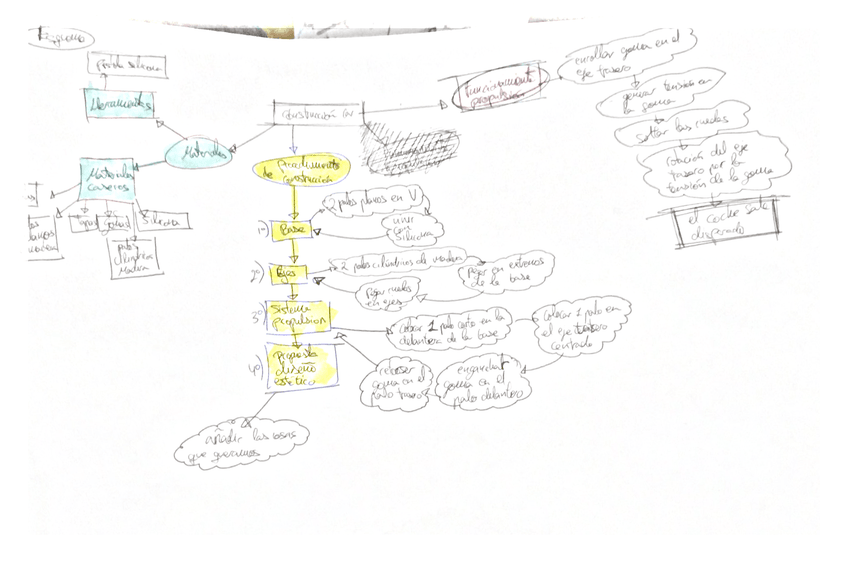 Esquema
Pistola silicona
Herramientas
Materiales
Materiales
caseros
Tapas
Gomas
Silicona
palo
cilíndrico
Madera
planos
madera
Construcción car
Procedimiento
de construcción
1º) Base
2 palos planos en V
unir
con
silicona
2º) Ejes
2 palos cilíndricos de madera
pegar en extremos
de la base
pegar ruedas
en ejes
3º) Sistema
propulsion
colocar 1 palo corto en la
delantera de la base
colocar 1 palo en
el eje trasero
centrado
enganchar
goma en el
palo delantero
goma en el
palo trasero
4º) Propuesta
diseño
estético
añadir las cosas
que queramos
Funcionamiento
propulsión
enrollar goma en el
eje trasero
generar tensión en
la goma
soltar las ruedas
rotación del eje
trasero por la
tensión de la goma
el coche sale
disparado